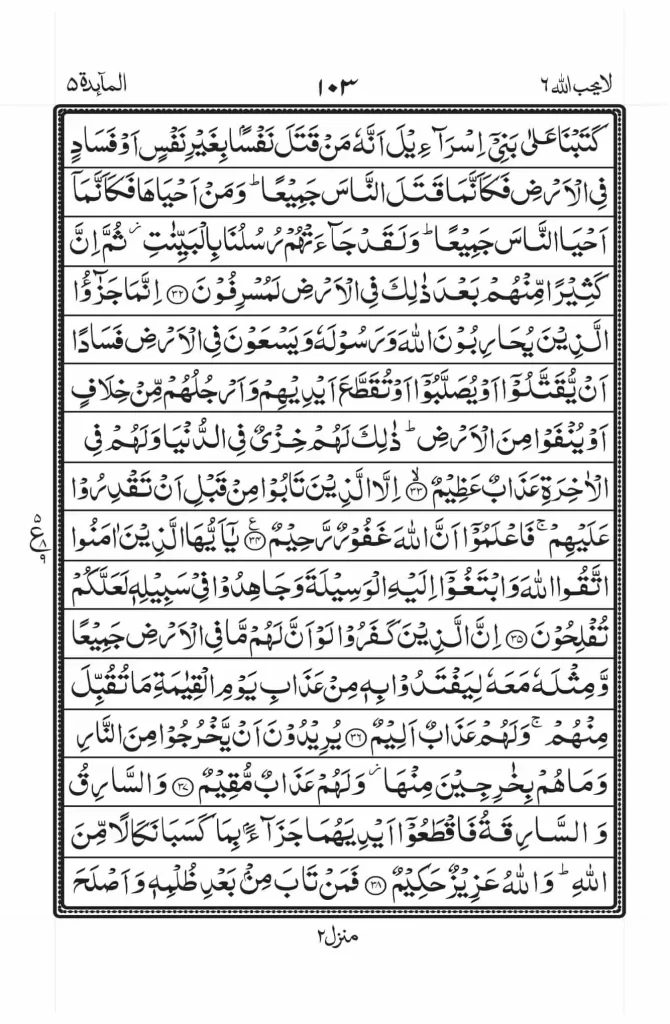 المآىِٕدة ۵ ۱۰۳ لا یحب اللہ ۶
كَتَبْنَا عَلٰى بَنِیْۤ اِسْرَآءِیْلَ اَنَّهٗ مَنْ قَتَلَ نَفْسًۢا بِغَیْرِ نَفْسٍ اَوْ فَسَادٍ
فِی الْاَرْضِ فَكَاَنَّمَا قَتَلَ النَّاسَ جَمِیْعًا ؕ وَ مَنْ اَحْیَاهَا فَكَاَنَّمَاۤ
اَحْیَا النَّاسَ جَمِیْعًا ؕ وَ لَقَدْ جَآءَتْهُمْ رُسُلُنَا بِالْبَیِّنٰتِ ؗ ثُمَّ اِنَّ
كَثِیْرًا مِّنْهُمْ بَعْدَ ذٰلِكَ فِی الْاَرْضِ لَمُسْرِفُوْنَ ﴿۳۲﴾ اِنَّمَا جَزٰٓؤُا
الَّذِیْنَ یُحَارِبُوْنَ اللّٰهَ وَ رَسُوْلَهٗ وَ یَسْعَوْنَ فِی الْاَرْضِ فَسَادًا
اَنْ یُّقَتَّلُوْۤا اَوْ یُصَلَّبُوْۤا اَوْ تُقَطَّعَ اَیْدِیْهِمْ وَ اَرْجُلُهُمْ مِّنْ خِلَافٍ
اَوْ یُنْفَوْا مِنَ الْاَرْضِ ؕ ذٰلِكَ لَهُمْ خِزْیٌ فِی الدُّنْیَا وَ لَهُمْ فِی
الْاٰخِرَةِ عَذَابٌ عَظِیْمٌ ﴿۳۳﴾ۙ اِلَّا الَّذِیْنَ تَابُوْا مِنْ قَبْلِ اَنْ تَقْدِرُوْا
عَلَیْهِمْ ۚ فَاعْلَمُوْۤا اَنَّ اللّٰهَ غَفُوْرٌ رَّحِیْمٌ ﴿۳۴﴾ۧ یٰۤاَیُّهَا الَّذِیْنَ اٰمَنُوا
اتَّقُوا اللّٰهَ وَ ابْتَغُوْۤا اِلَیْهِ الْوَسِیْلَةَ وَ جَاهِدُوْا فِیْ سَبِیْلِهٖ لَعَلَّكُمْ
تُفْلِحُوْنَ ﴿۳۵﴾ اِنَّ الَّذِیْنَ كَفَرُوْا لَوْ اَنَّ لَهُمْ مَّا فِی الْاَرْضِ جَمِیْعًا
وَّ مِثْلَهٗ مَعَهٗ لِیَفْتَدُوْا بِهٖ مِنْ عَذَابِ یَوْمِ الْقِیٰمَةِ مَا تُقُبِّلَ
مِنْهُمْ ۚ وَ لَهُمْ عَذَابٌ اَلِیْمٌ ﴿۳۶﴾ یُرِیْدُوْنَ اَنْ یَّخْرُجُوْا مِنَ النَّارِ
وَ مَا هُمْ بِخٰرِجِیْنَ مِنْهَا ؗ وَ لَهُمْ عَذَابٌ مُّقِیْمٌ ﴿۳۷﴾ وَ السَّارِقُ
وَ السَّارِقَةُ فَاقْطَعُوْۤا اَیْدِیَهُمَا جَزَآءًۢ بِمَا كَسَبَا نَكَالًا مِّنَ
اللّٰهِ ؕ وَ اللّٰهُ عَزِیْزٌ حَكِیْمٌ ﴿۳۸﴾ فَمَنْ تَابَ مِنْۢ بَعْدِ ظُلْمِهٖ وَ اَصْلَحَ
منزل ۲